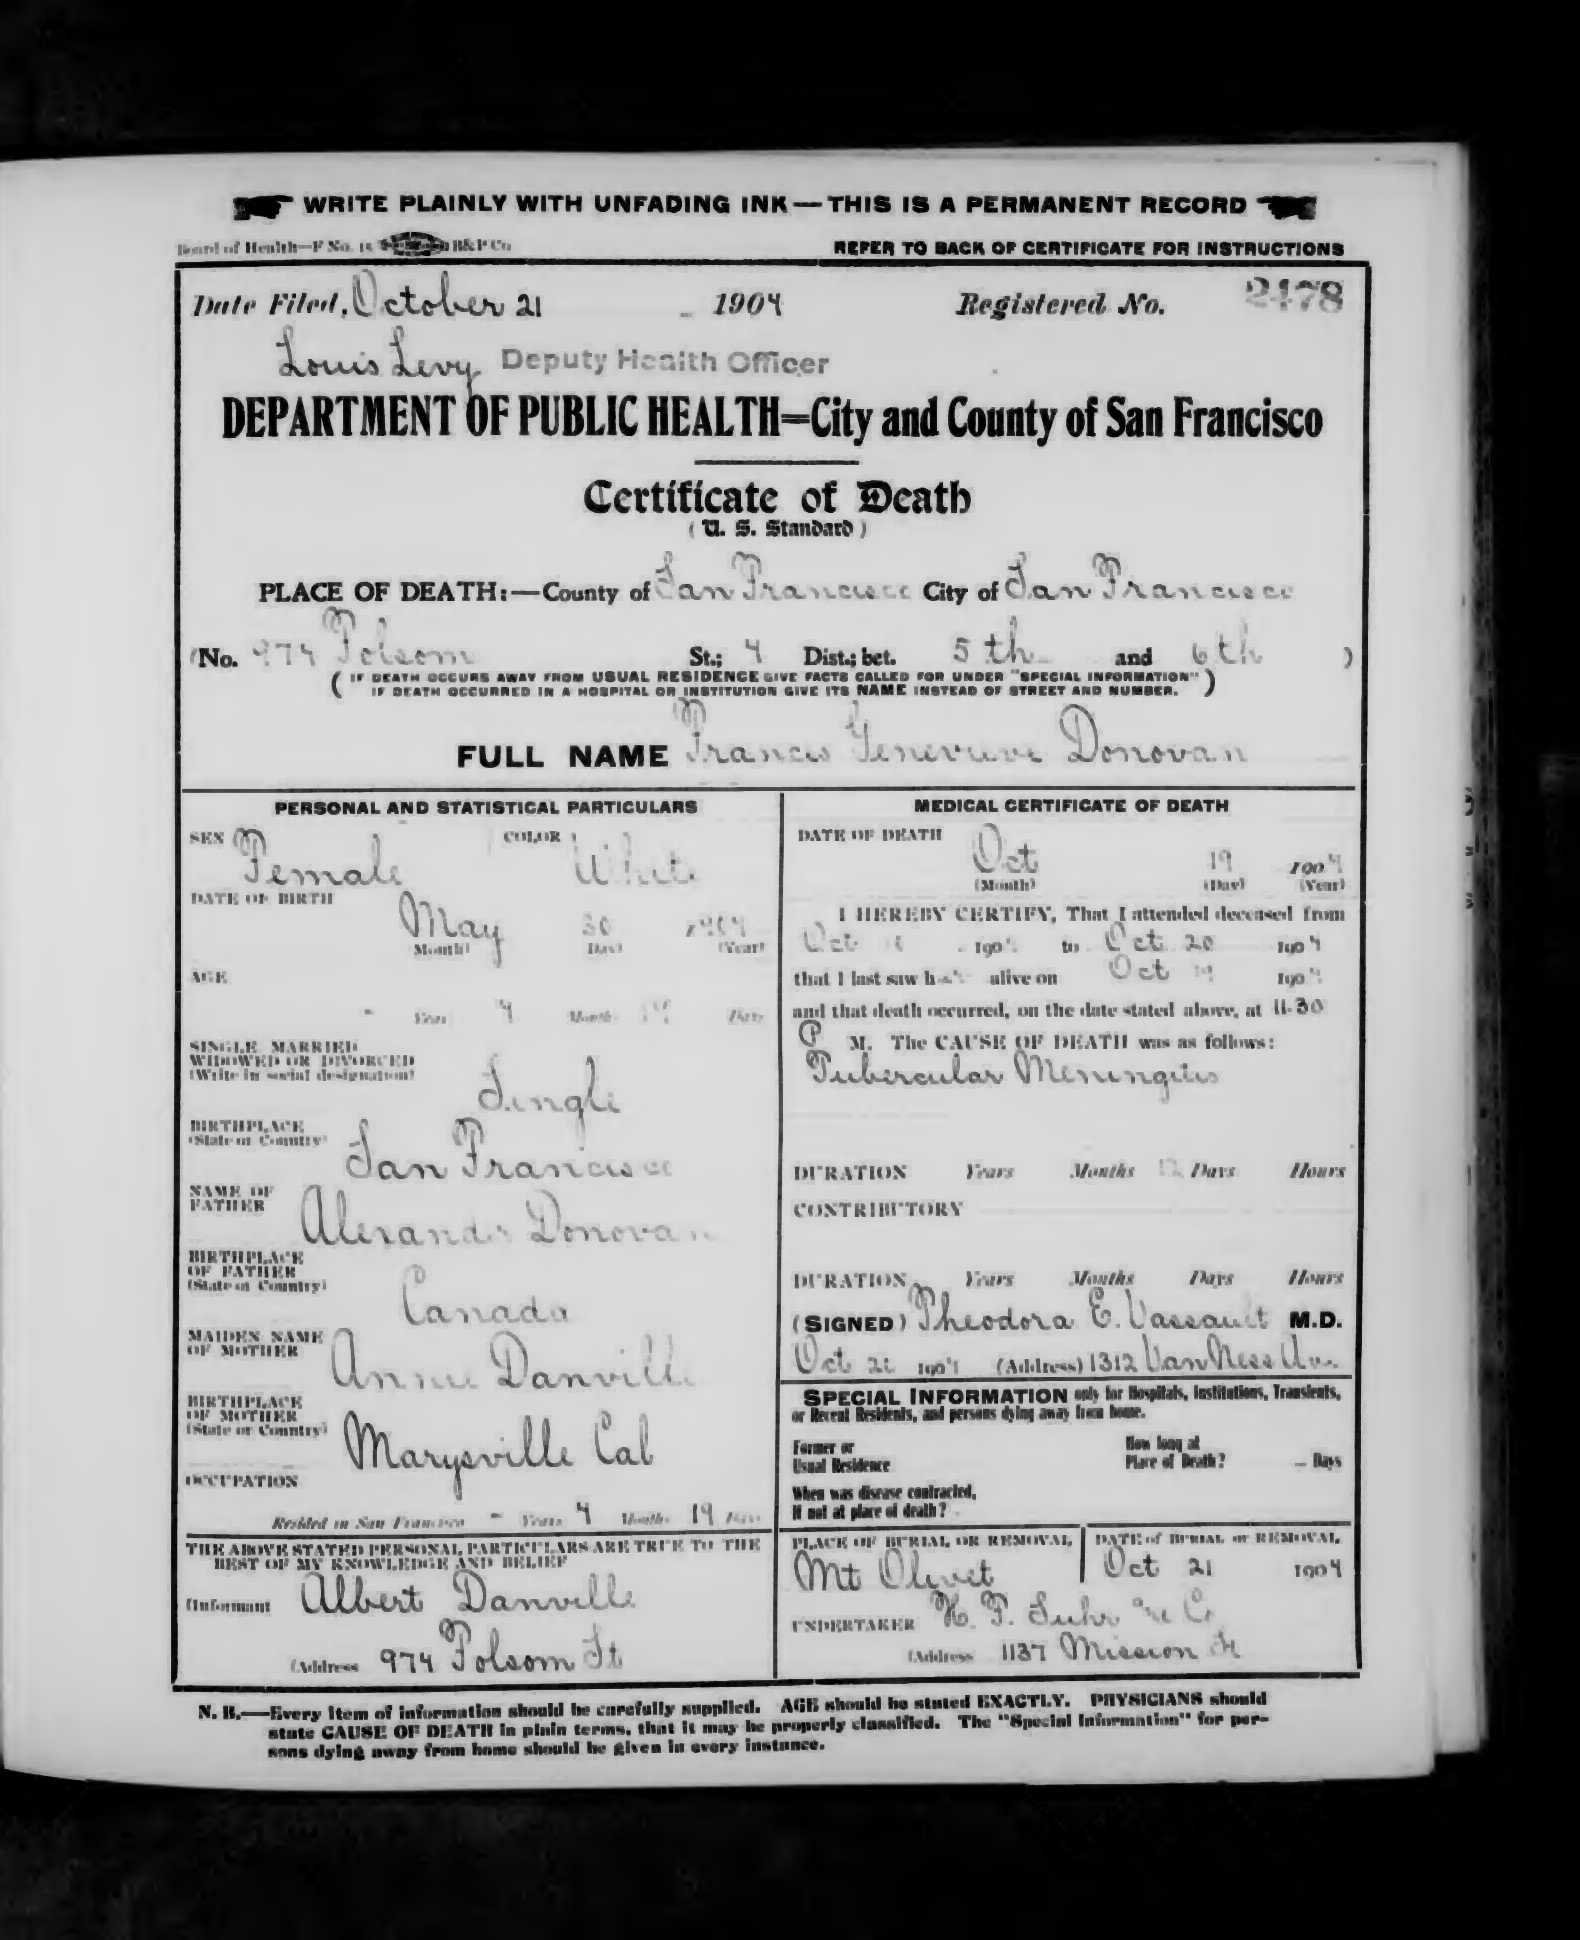 WRITE PLAINLY WITH UNFADING INK—THIS IS A PERMANENT RECORD
Board of Health—F No. 15 B&P Co
REFER TO BACK OF CERTIFICATE FOR INSTRUCTIONS
Date Filed, October 21 1904 Registered No. 2478
Louis Levy Deputy Health Officer
DEPARTMENT OF PUBLIC HEALTH=City and County of San Francisco
Certificate of Death
(U. S. Standard)
PLACE OF DEATH:—County of San Francisco City of San Francisco
(No. 974 Folsom St.; 4 Dist.; bet. 5th and 6th )
(IF DEATH OCCURS AWAY FROM USUAL RESIDENCE GIVE FACTS CALLED FOR UNDER "SPECIAL INFORMATION"
IF DEATH OCCURRED IN A HOSPITAL OR INSTITUTION GIVE ITS NAME INSTEAD OF STREET AND NUMBER.)
FULL NAME Francis Genevieve Donovan
PERSONAL AND STATISTICAL PARTICULARS
SEX Female COLOR White
DATE OF BIRTH
May 30 1904
(Month) (Day) (Year)
AGE
- Years 4 Months 19 Days
SINGLE MARRIED
WIDOWED OR DIVORCED
(Write in social designation)
Single
BIRTHPLACE
(State or Country)
San Francisco
NAME OF
FATHER
Alexander Donovan
BIRTHPLACE
OF FATHER
(State or Country)
Canada
MAIDEN NAME
OF MOTHER
Annie Danville
BIRTHPLACE
OF MOTHER
(State or Country)
Marysville Cal
OCCUPATION
Resided in San Francisco - Years 4 Months 19 Days
THE ABOVE STATED PERSONAL PARTICULARS ARE TRUE TO THE
BEST OF MY KNOWLEDGE AND BELIEF
(Informant Albert Danville
(Address 974 Folsom St
MEDICAL CERTIFICATE OF DEATH
DATE OF DEATH
Oct 19 1904
(Month) (Day) (Year)
I HEREBY CERTIFY, That I attended deceased from
Oct 1904 to Oct 20 1904
that I last saw her alive on Oct 19 1904
and that death occurred, on the date stated above, at 11-30
P M. The CAUSE OF DEATH was as follows:
Tubercular Meningitis
DURATION Years Months 12 Days Hours
CONTRIBUTORY
DURATION Years Months Days Hours
(SIGNED) Theodora E. Vassault M.D.
Oct 1904 (Address) 1312 Van Ness Av.
SPECIAL INFORMATION only for Hospitals, Institutions, Transients,
or Recent Residents, and persons dying away from home.
Former or
Usual Residence
How long at
Place of Death? – Days
When was disease contracted,
If not at place of death?
PLACE OF BURIAL OR REMOVAL
Mt Olivet
DATE of BURIAL or REMOVAL
Oct 21 1904
UNDERTAKER H. F. Suhr Co
(Address 1137 Mission St
N. B.—Every item of information should be carefully supplied. AGE should be stated EXACTLY. PHYSICIANS should
state CAUSE OF DEATH in plain terms, that it may be properly classified. The "Special Information" for per-
sons dying away from home should be given in every instance.